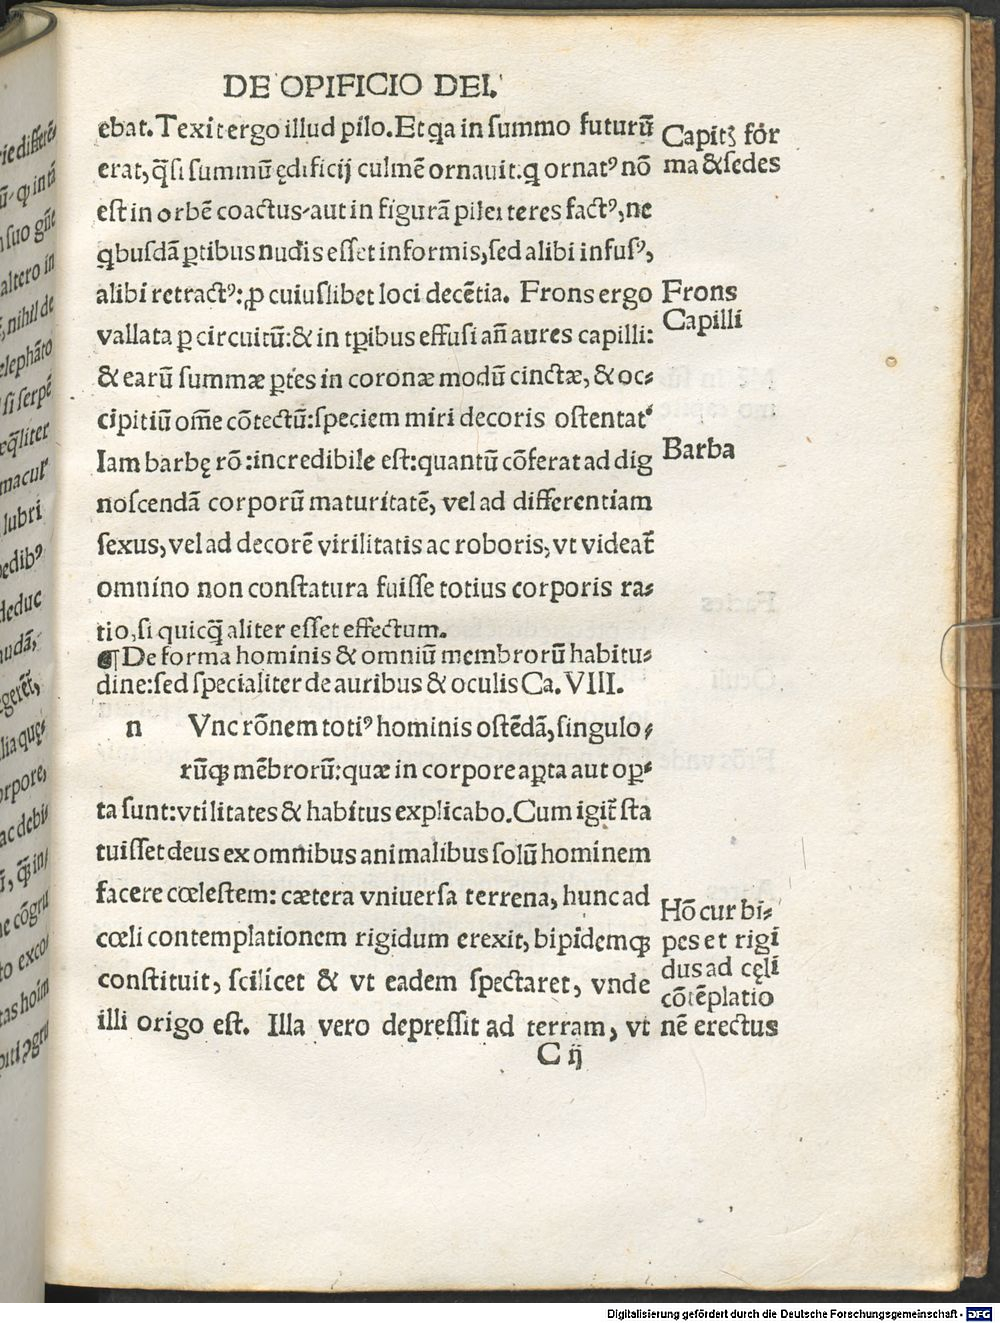 DE OPIFICIO DEI.
ebat. Texit ergo illud pilo. Et qa in summo futurū
erat, q̄si summū ędificij culmē ornauit. q ornatꝰ nō
est in orbē coactus aut in figurā pilei teres factꝰ, ne
qbusdā ꝑtibus nudis esset informis, sed alibi infusꝰ,
alibi retractꝰ: ꝓ cuiuslibet loci decētia. Frons ergo
vallata ꝑ circuitū: & in tꝑibus effusi an̄ aures capilli:
& earū summæ ꝑtes in coronæ modū cinctæ, & oc⸗
cipitiū om̄e cōtectū: speciem miri decoris ostentat
Iam barbę rō: incredibile est: quantū cōferat ad dig
noscendā corporū maturitatē, vel ad differentiam
sexus, vel ad decorē virilitatis ac roboris, vt videat̄
omnino non constatura fuisse totius corporis ra⸗
tio, si quicq̄ aliter esset effectum.
¶ De forma hominis & omniū membrorū habitu⸗
dine: sed specialiter de auribus & oculis Ca. VIII.
n Vnc rōnem totiꝰ hominis ostēdā, singulo⸗
rūqꝫ mēbrorū: quæ in corpore aꝑta aut oꝑ⸗
ta sunt: vtilitates & habitus explicabo. Cum igit̄ sta
tuisset deus ex omnibus animalibus solū hominem
facere cœlestem: cætera vniuersa terrena, hunc ad
cœli contemplationem rigidum erexit, bipidemqꝫ
constituit, scilicet & vt eadem spectaret, vnde
illi origo est. Illa vero depressit ad terram, vt
C ij
Capitꝫ for
ma & sedes
Frons
Capilli
Barba
Hō cur bi⸗
pes et rigi
dus ad cęli
cōtēplatio
nē erectus
Digitalisierung gefördert durch die Deutsche Forschungsgemeinschaft - DFG